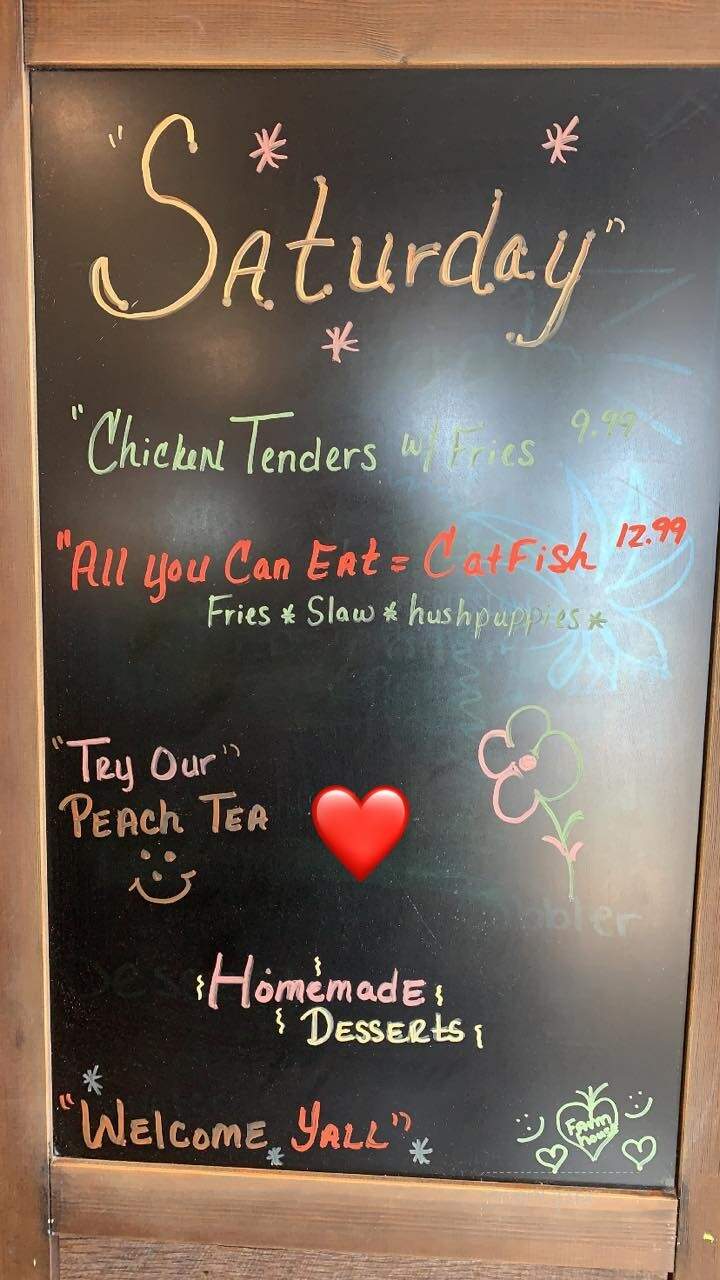 "Saturday"
"Chicken Tenders w/ Fries 9.99
"All you Can Eat = CatFish 12.99
Fries * Slaw * hushpuppies *
"Try Our"
Peach Tea
Homemade
Desserts
"Welcome Yall"
Farm
house